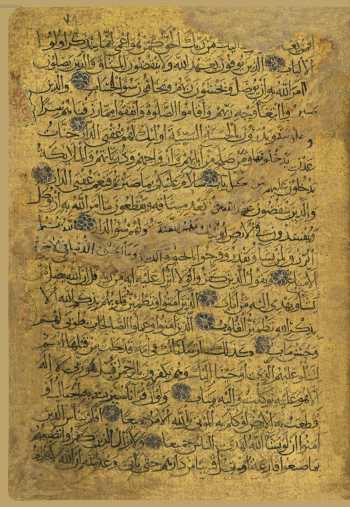 اليك من ربك الحق كمن هو اعمى انما يتذكر اولوا
الالباب الذين يوفون بعهد الله ولا ينقضون الميثاق والذين يصلون
ما امر الله به ان يوصل ويخشون ربهم ويخافون سوء الحساب والذين
صبروا ابتغاء وجه ربهم واقاموا الصلوة وانفقوا مما رزقناهم سرا
وعلانية ويدرؤن بالحسنة السيئة اولئك لهم عقبى الدار جنات
عدن يدخلونها ومن صلح من ابائهم وازواجهم وذرياتهم والملائكة
يدخلون عليهم من كل باب سلام عليكم بما صبرتم فنعم عقبى الدار
والذين ينقضون عهد الله من بعد ميثاقه ويقطعون ما امر الله به ان يوصل
ويفسدون في الارض اولئك لهم اللعنة ولهم سوء الدار الله يبسط
الرزق لمن يشاء ويقدر وفرحوا بالحيوة الدنيا وما الحيوة الدنيا في الاخرة
الا متاع ويقول الذين كفروا لولا انزل عليه اية من ربه قل ان الله يضل من
يشاء ويهدي اليه من اناب الذين امنوا وتطمئن قلوبهم بذكر الله الا
بذكر الله تطمئن القلوب الذين امنوا وعملوا الصالحات طوبى لهم
وحسن ماب كذلك ارسلناك في امة قد خلت من قبلها امم
لتتلو عليهم الذي اوحينا اليك وهم يكفرون بالرحمن قل هو ربي لا اله
الا هو عليه توكلت واليه متاب ولو ان قرانا سيرت به الجبال او
قطعت به الارض او كلم به الموتى بل لله الامر جميعا افلم يايئس الذين
امنوا ان لو يشاء الله لهدى الناس جميعا ولا يزال الذين كفروا تصيبهم
بما صنعوا قارعة او تحل قريبا من دارهم حتى ياتي وعد الله ان الله لا يخلف